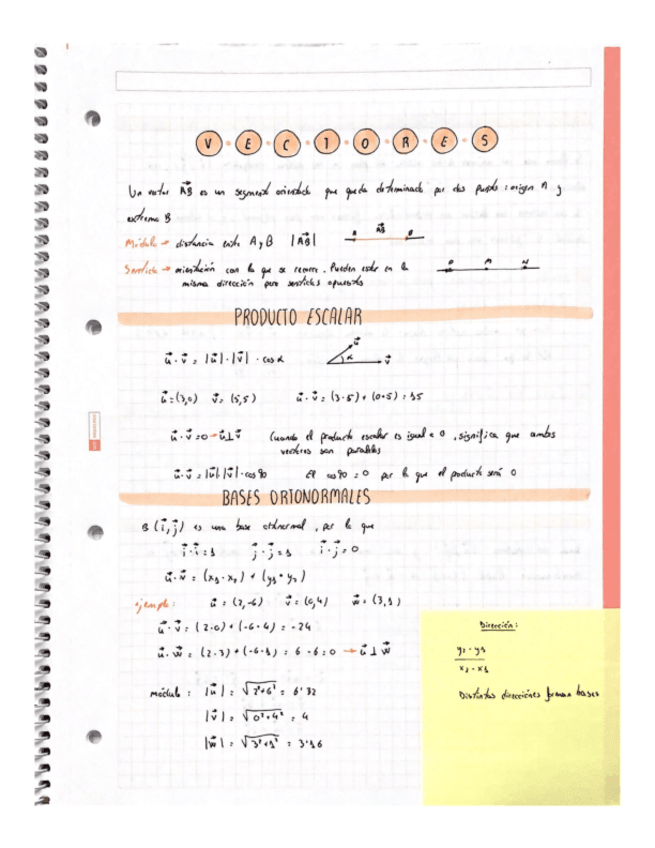 VECTORES
Un vector AB⃗ es un segmento orientado que queda determinado por dos puntos: origen A y
extremo B
Módulo → distancia entre A y B |AB⃗| A AB⃗ B
Sentido → orientación con la que se recorre. Pueden estar en la
misma dirección pero sentidos opuestos
PRODUCTO ESCALAR
u⃗ · v⃗ = |u⃗| · |v⃗| · cos α u⃗ α v⃗
u⃗ = (3,0) v⃗ = (5,5) u⃗ · v⃗ = (3·5) + (0·5) = 15
u⃗ · v⃗ = 0 → u⃗ ⊥ v⃗ Cuando el producto escalar es igual a 0, significa que ambos
vectores son paralelos
u⃗ · v⃗ = |u⃗| · |v⃗| · cos 90 El cos 90 = 0 por lo que el producto será 0
BASES ORTONORMALES
B (i⃗, j⃗) es una base ortonormal, por lo que
i⃗ · i⃗ = 1 j⃗ · j⃗ = 1 i⃗ · j⃗ = 0
u⃗ · v⃗ = (x₁ · x₂) + (y₁ · y₂)
ejemplo: u⃗ = (2,-6) v⃗ = (0,4) w⃗ = (3,1)
u⃗ · v⃗ = (2·0) + (-6·4) = -24
u⃗ · w⃗ = (2·3) + (-6·1) = 6 - 6 = 0 → u⃗ ⊥ w⃗
módulo: |u⃗| = √2²+6² = 6'32
|v⃗| = √0²+4² = 4
|w⃗| = √3²+1² = 3'16
Dirección:
y₂ - y₁
x₂ - x₁
Distintas direcciones forman bases